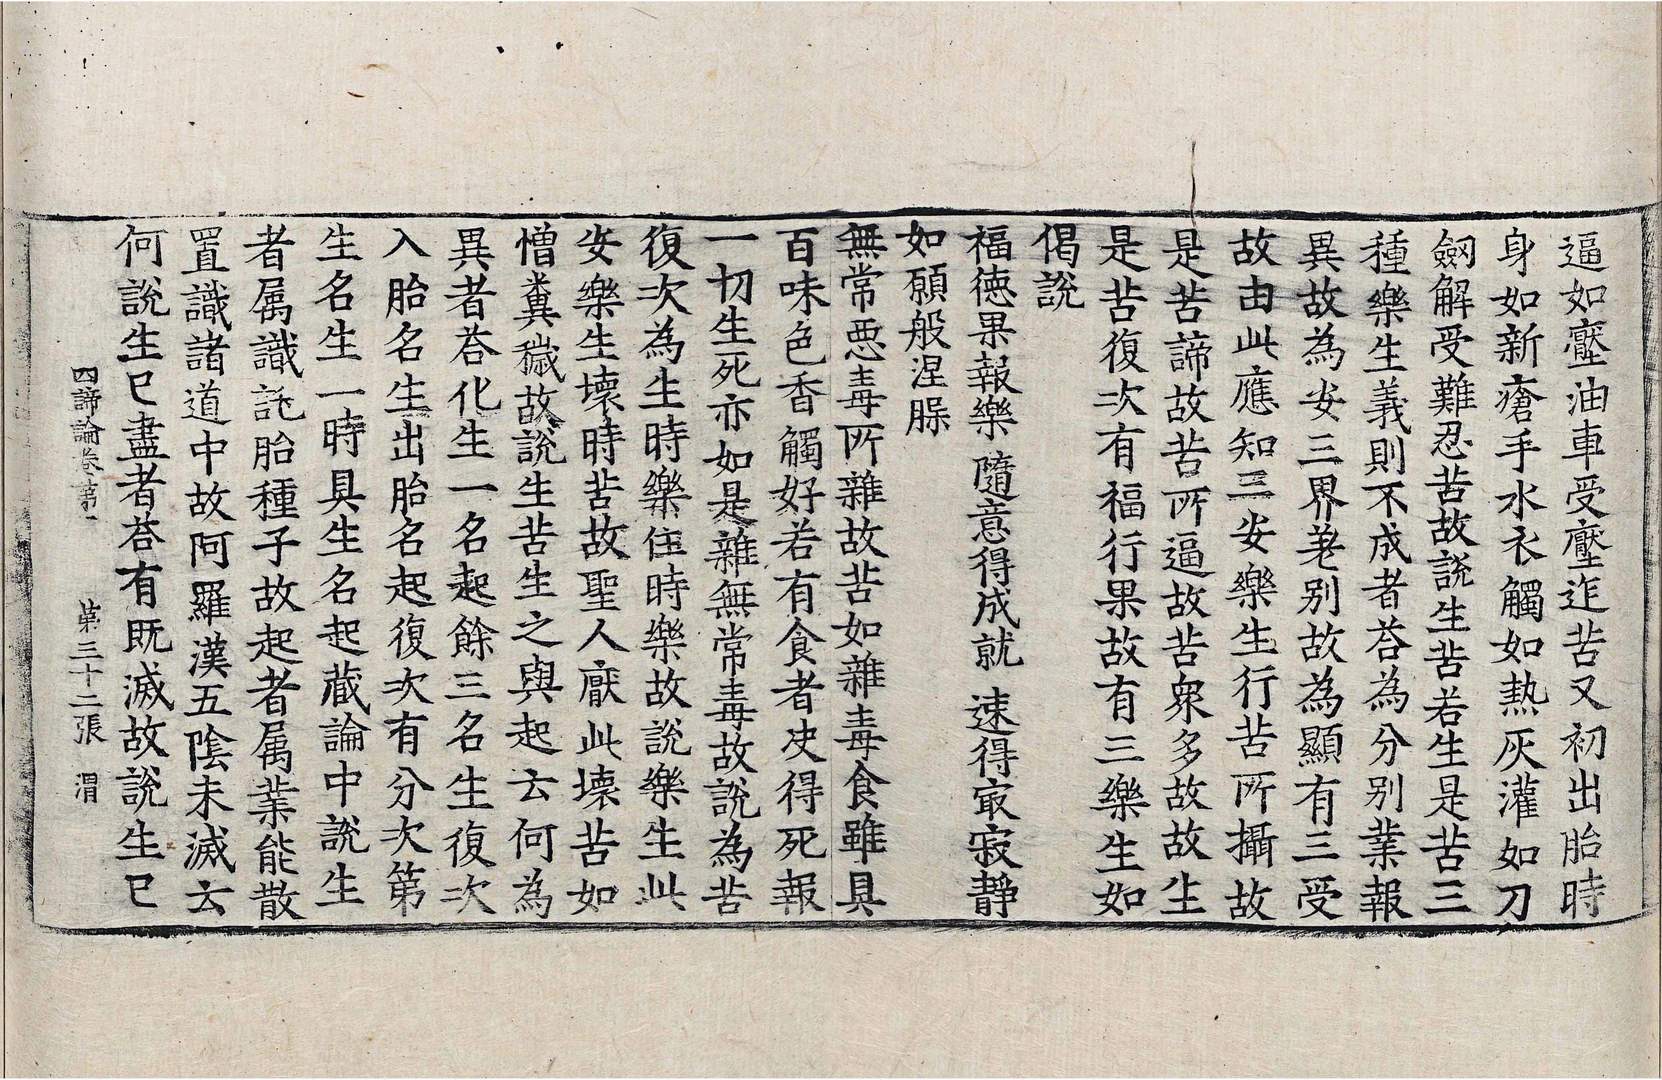 逼如壓油車受壓迮苦又初出胎時
身如新瘡手水衣觸如熱灰灌如刀
劒解受難忍苦故説生苦若生是苦三
種樂生義則不成者荅為分別業報
異故為安三界差别故為顯有三受
故由此應知三安樂生行苦所攝故
是苦諦故苦所逼故苦衆多故故生
是苦復次有福行果故有三樂生如
偈説
福德果報樂 隨意得成就 速得寂寂靜
如願般涅槃
無常惡毒所雜故苦如雜毒食雖具
百味色香觸好若有食者决得死報
一切生死亦如是雜無常毒故說為苦
復次為生時樂住時樂故說樂生此
安樂生壞時苦故聖人厭此壞苦如
憎糞穢故說生苦生之與起云何為
異者荅化生一名起餘三名生復次
入胎名生出胎名起復次有分次第
生名生一時具生名起藏論中說生
者属識託胎種子故起者属業能散
置識諸道中故阿羅漢五陰未滅云
何說生已盡者荅有既滅故說生已
四諦論卷第一 第三十二張 渭